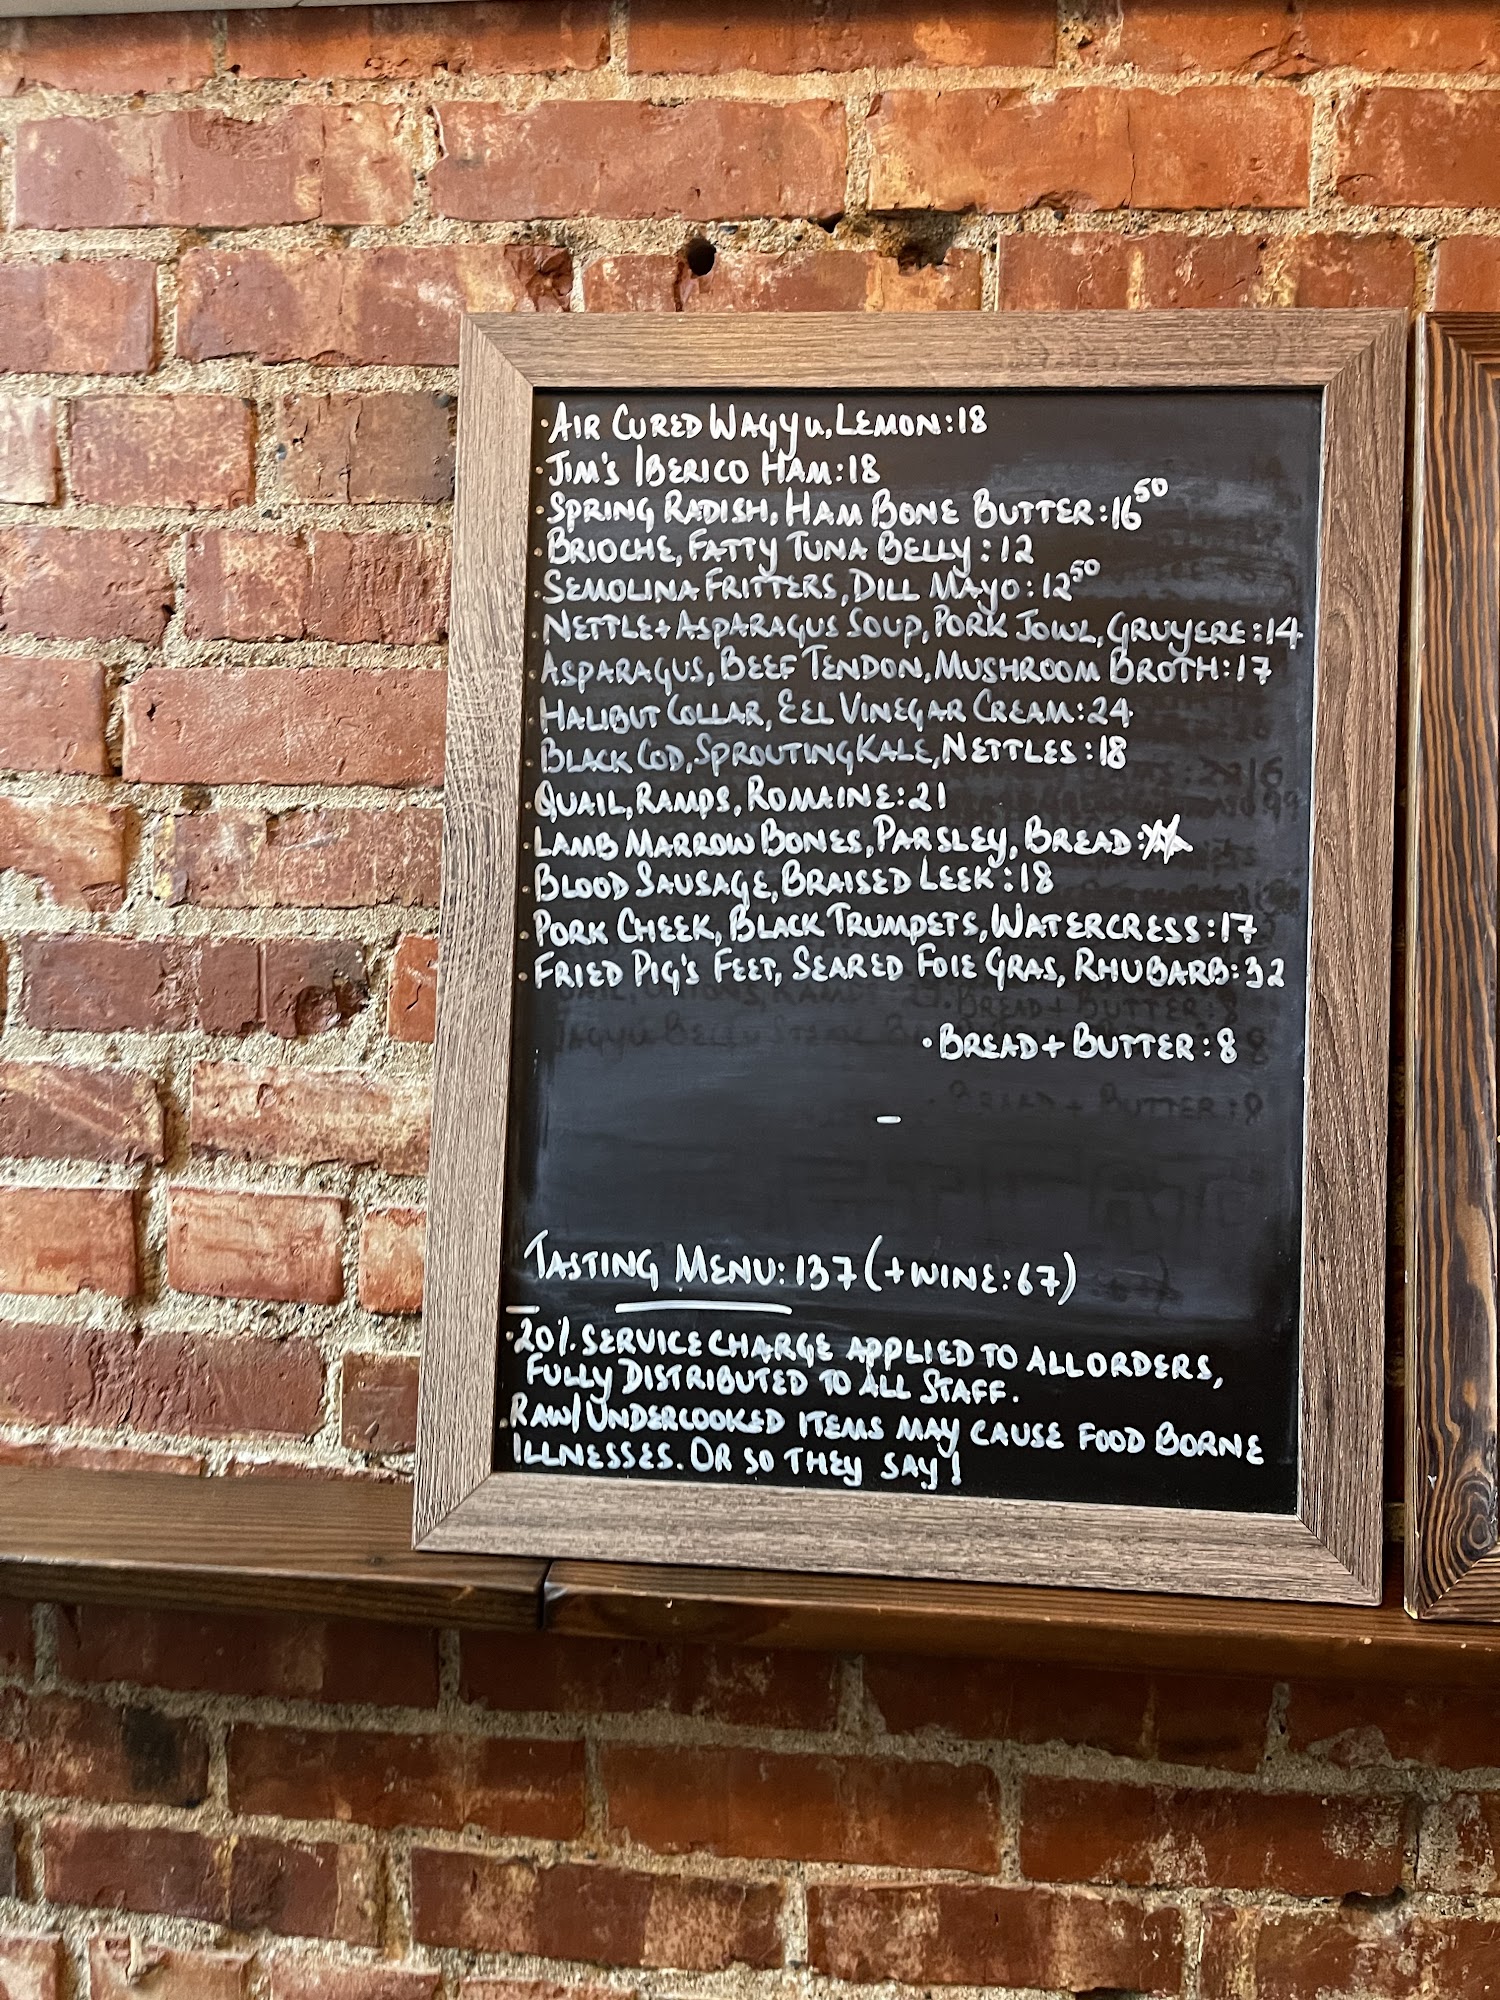 ·AIR CURED WAGYU, LEMON:18
·JIM'S IBERICO HAM:18
·SPRING RADISH, HAM BONE BUTTER:16⁵⁰
·BRIOCHE, FATTY TUNA BELLY:12
·SEMOLINA FRITTERS, DILL MAYO:12⁵⁰
·NETTLE+ASPARAGUS SOUP, PORK JOWL, GRUYERE:14
·ASPARAGUS, BEEF TENDON, MUSHROOM BROTH:17
·HALIBUT COLLAR, EEL VINEGAR CREAM:24
·BLACK COD, SPROUTING KALE, NETTLES:18
·QUAIL, RAMPS, ROMAINE:21
·LAMB MARROW BONES, PARSLEY, BREAD:
·BLOOD SAUSAGE, BRAISED LEEK:18
·PORK CHEEK, BLACK TRUMPETS, WATERCRESS:17
·FRIED PIG'S FEET, SEARED FOIE GRAS, RHUBARB:32
·BREAD+BUTTER:8
–
TASTING MENU:137 (+WINE:67)
·20% SERVICE CHARGE APPLIED TO ALL ORDERS,
FULLY DISTRIBUTED TO ALL STAFF.
·RAW/UNDERCOOKED ITEMS MAY CAUSE FOOD BORNE
ILLNESSES. OR SO THEY SAY!